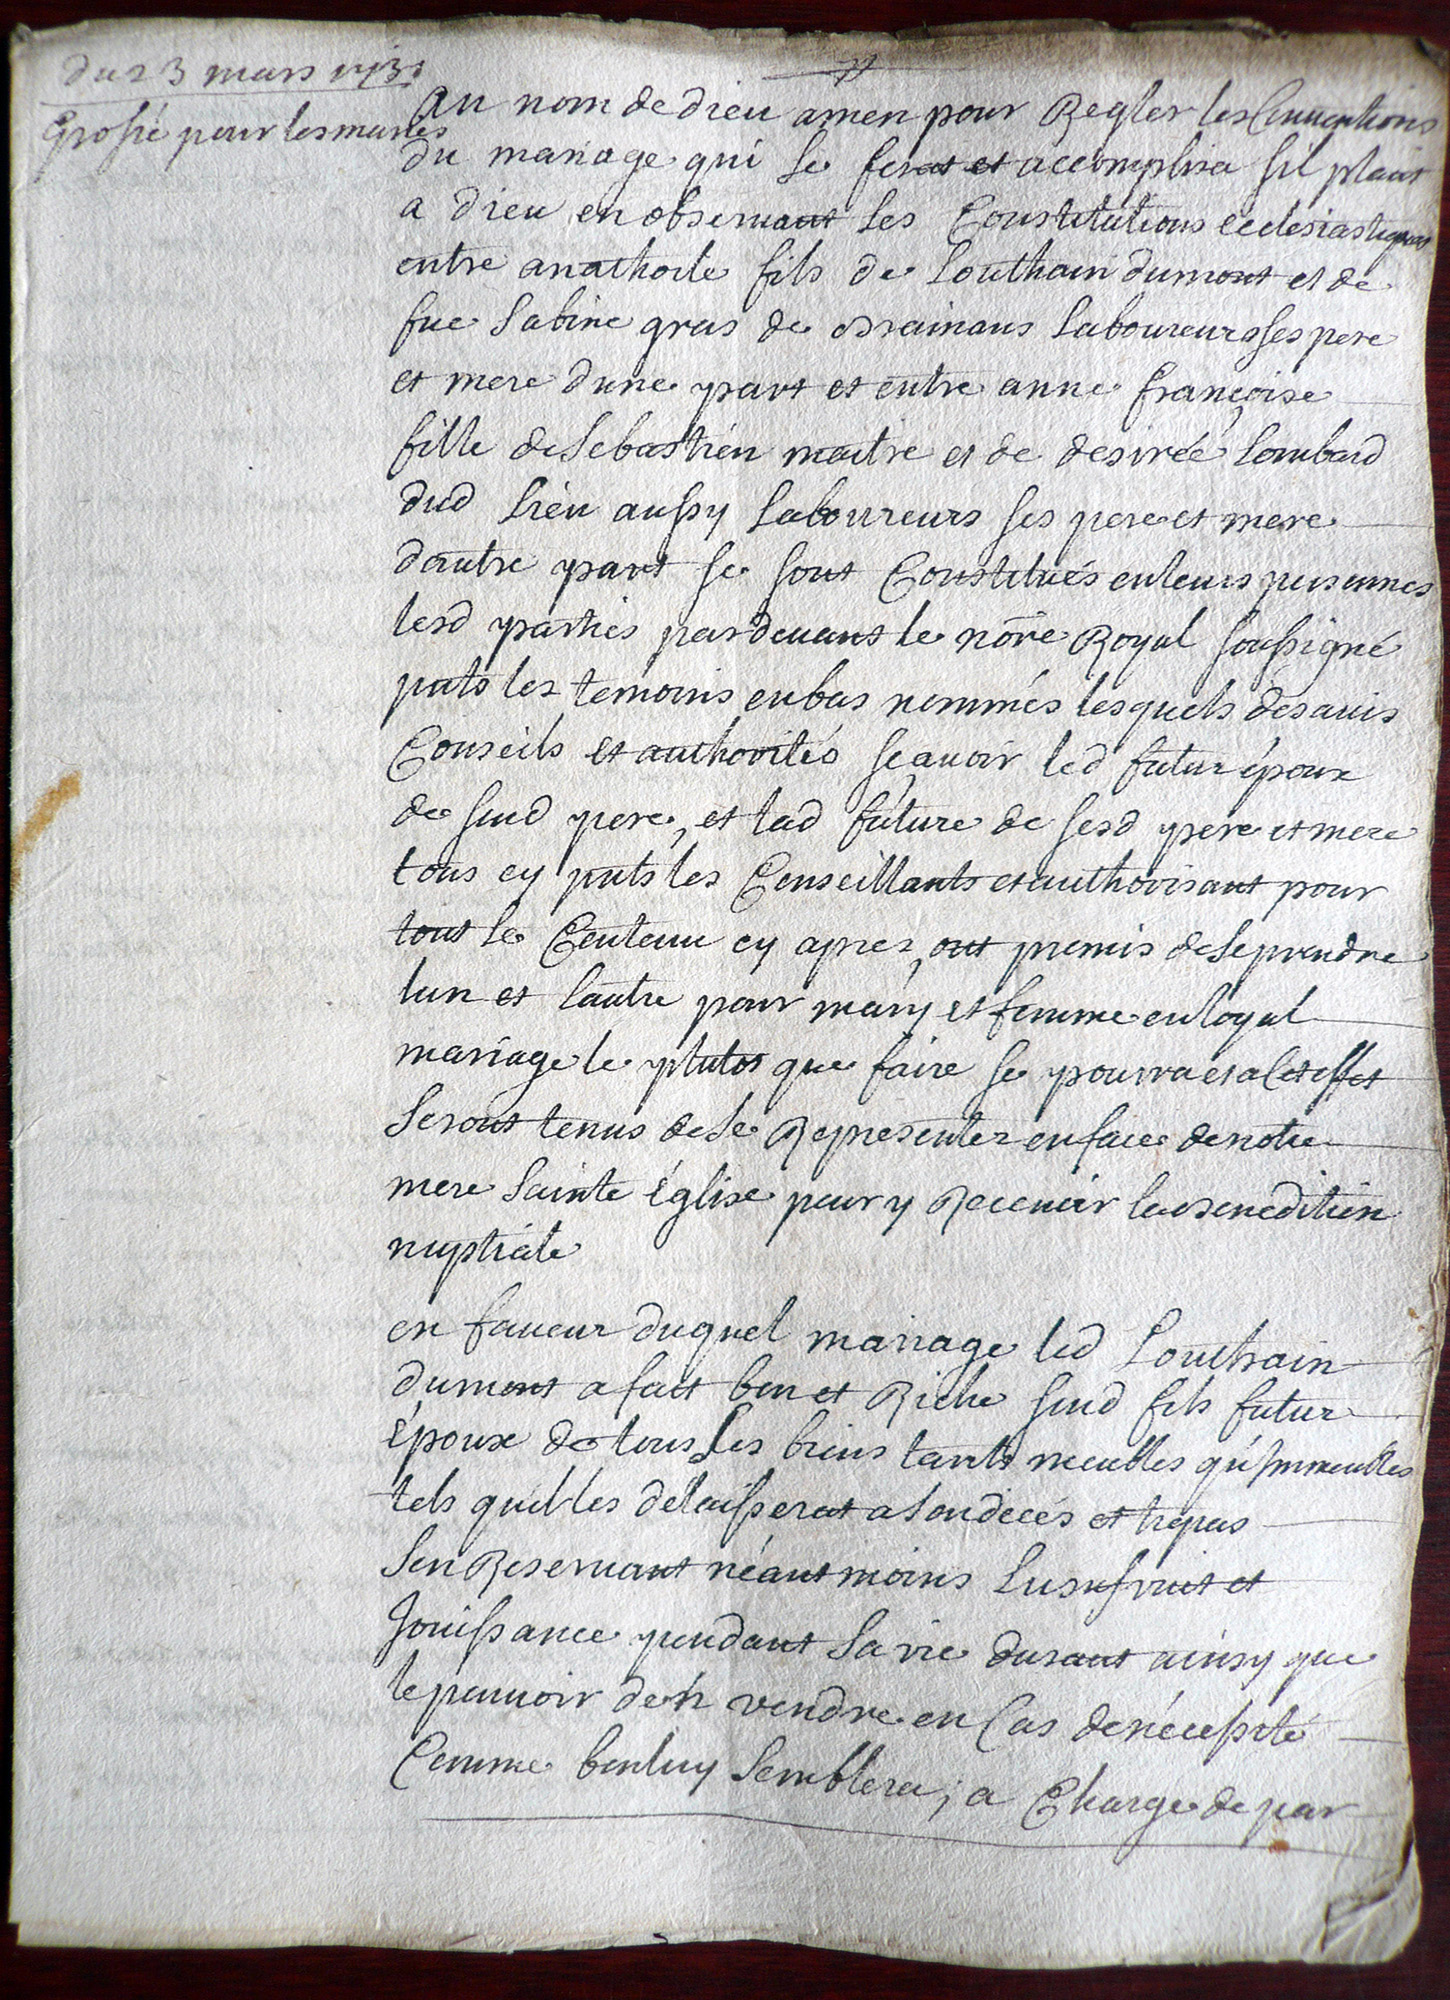 du 23 mars 173
Grossé pour les mariés
Au nom de dieu amen pour Regler les Conuentions
du mariage qui se ferat et accomplira sil plaist
a dieu en obseruant les Constitutions ecclesiastiques
entre anathoile fils de Louthain dumont et de
fue Sabine gras de Brainans Laboureurs ses pere
et mere dune part et entre anne françoise
fille de Sebastien maitre et de desirée Lombard
dud Lieu aussy Laboureurs ses pere et mere
dautre part se sont Constitués en leurs personnes
lesd parties pardeuant le nore Royal soussigné
pnts les temoins en bas nommés lesquels des auis
Conseils et authorités sçauoir led futur époux
de sond pere, et lad future de sesd pere et mere
tous cy pnts les Conseillants et authorisant pour
tout le Contenu cy aprez, ont promis de se prendre
lun et lautre pour mary et femme en loyal
mariage le plutos que faire se pourra et a Cet effet
Seront tenus de se Representer en face de notre
mere Sainte Église pour y Receuoir la benedition
nuptiale
en faueur duquel mariage led Louthain
dumont a fait bon et Riche sond fils futur
époux de tous ses biens tants meubles qu'immeubles
tels quil les délaisserat a son decés et trepas
Sen Reseruant néantmoins Lusufruit et
Jouissance pendant sa vie durant ainsy que
le pouuoir den vendre en Cas de nécessité
Comme bon luy Semblera; a Charge de par